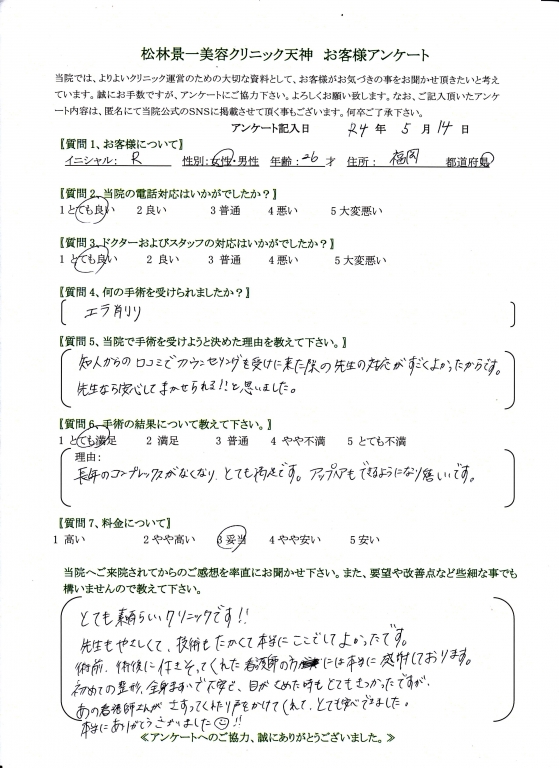 松林景一美容クリニック天神　お客様アンケート
当院では、よりよいクリニック運営のための大切な資料として、お客様がお気づきの事をお聞かせ頂きたいと考え
ています。誠にお手数ですが、アンケートにご協力下さい。よろしくお願い致します。なお、ご記入頂いたアンケ
ート内容は、匿名にて当院公式のSNSに掲載させて頂く事もございます。何卒ご了承下さい。
アンケート記入日　R4 年 5 月 14 日
【質問1、お客様について】
イニシャル： R　性別：女性・男性　年齢：26 才　住所： 福岡　都道府県
【質問2、当院の電話対応はいかがでしたか？】
1 とても良い　2 良い　3 普通　4 悪い　5 大変悪い
【質問3、ドクターおよびスタッフの対応はいかがでしたか？】
1 とても良い　2 良い　3 普通　4 悪い　5 大変悪い
【質問4、何の手術を受けられましたか？】
エラ削り
【質問5、当院で手術を受けようと決めた理由を教えて下さい。】
知人からの口コミでカウンセリングを受けに来た際の先生の対応がすごくよかったからです。
先生なら安心してまかせられる!!と思いました。
【質問6、手術の結果について教えて下さい。】
1 とても満足　2 満足　3 普通　4 やや不満　5 とても不満
理由：
長年のコンプレックスがなくなり、とても満足です。アップヘアもできるようになり嬉しいです。
【質問7、料金について】
1 高い　2 やや高い　3 妥当　4 やや安い　5 安い
当院へご来院されてからのご感想を率直にお聞かせ下さい。また、要望や改善点など些細な事でも
構いませんので教えて下さい。
とても素晴らしいクリニックです!!
先生もやさしくて、技術もたかくて本当にここでしてよかったです。
術前、術後に付きそってくれた看護師の方には本当に感謝しております。
初めての整形、全身ますいで不安で、目がさめた時もとてもきつかったですが、
あの看護師さんが さすってくれたり声をかけてくれて、とても安心できました。
本当にありがとうございました☺!!
≪アンケートへのご協力、誠にありがとうございました。≫